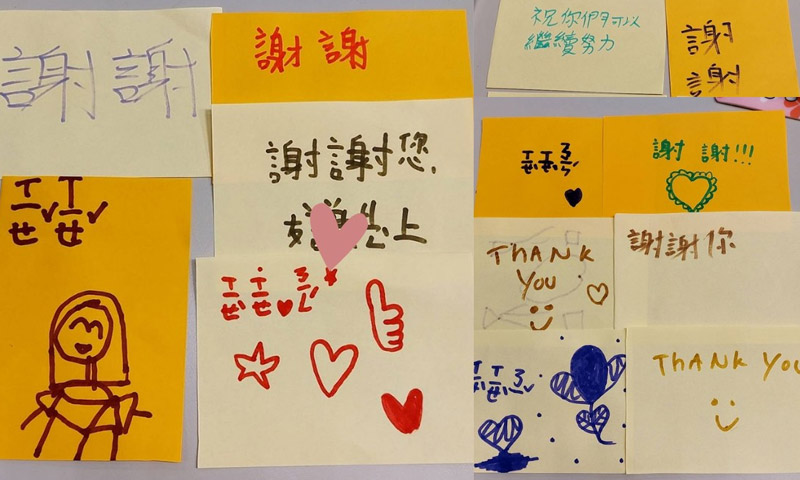 謝謝
謝謝
謝謝您,
上
ㄒㄧㄝˋㄒㄧㄝˋ
ㄒㄧㄝˋ˙ㄒㄧㄝ♥ㄋㄧˇ
祝你們可以
繼續努力
謝
謝
ㄒㄧㄝˋㄒㄧㄝˋㄋㄧˇ
謝謝!!!
THANK
YOU
謝謝你
ㄒㄧㄝˋㄒㄧㄝˋㄋㄧˇ
THANK YOU